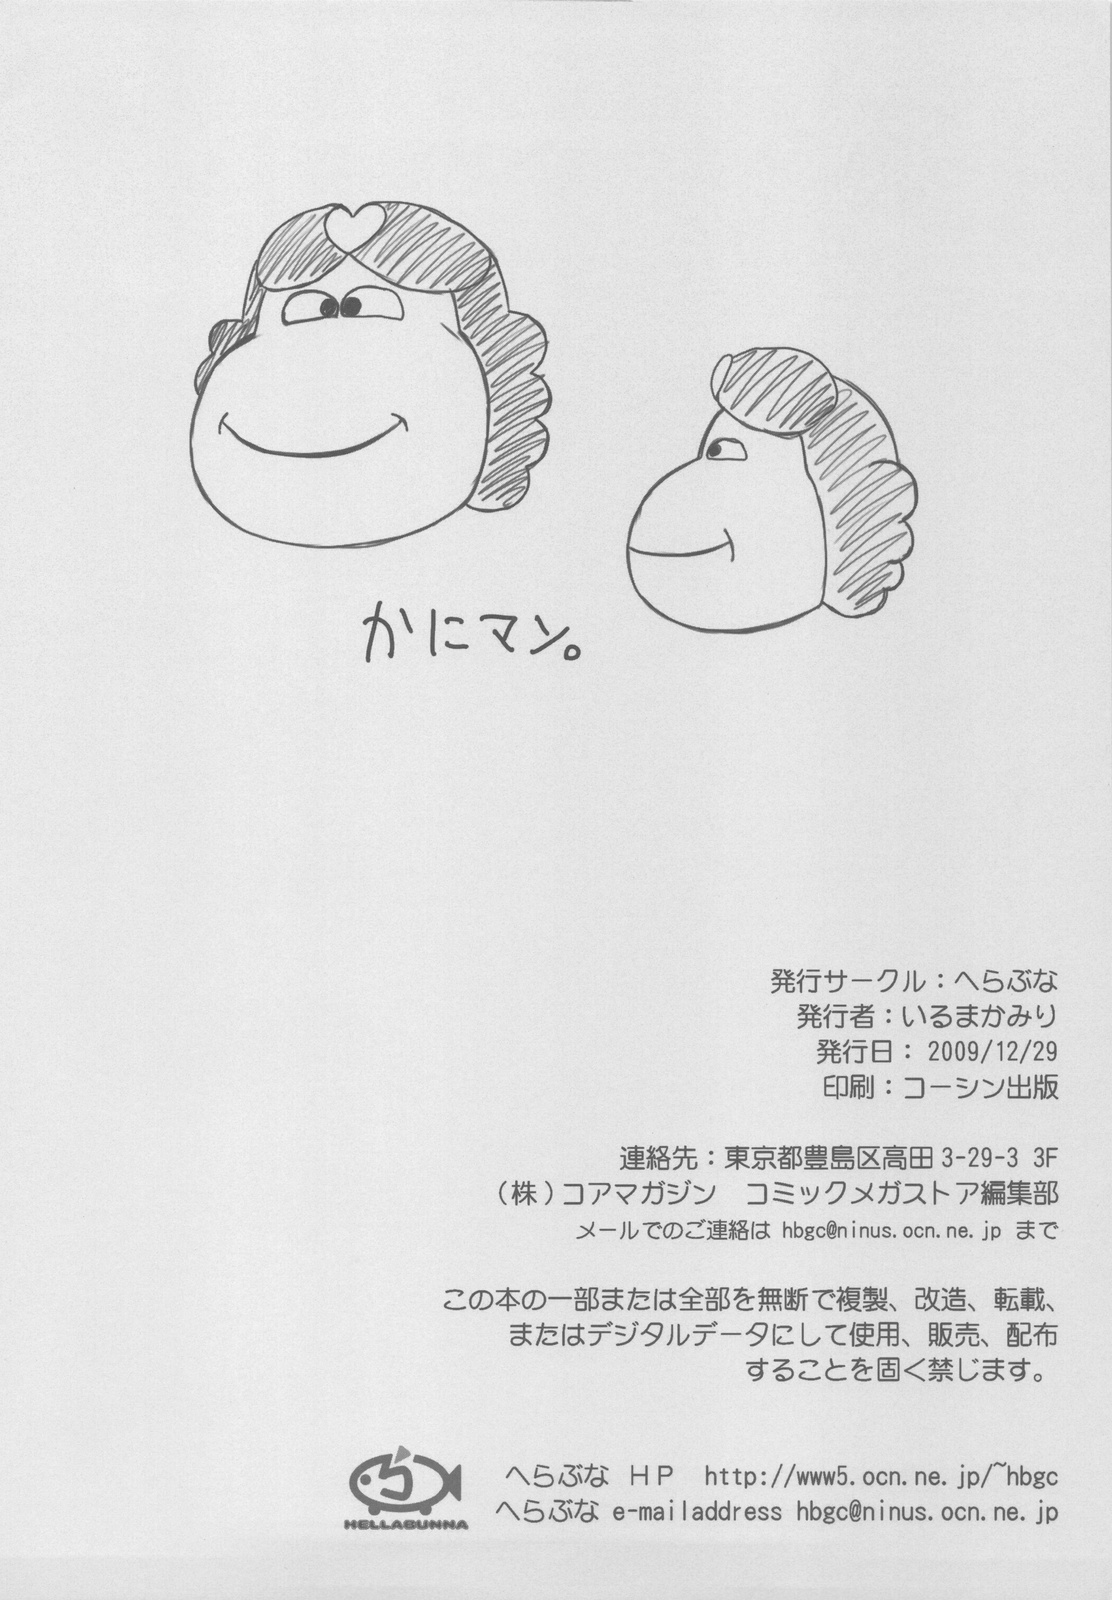 かにマン。
発行サークル：へらぶな
発行者：いるまかみり
発行日： 2009/12/29
印刷：コーシン出版
連絡先：東京都豊島区高田 3-29-3 3F
（株）コアマガジン　コミックメガストア編集部
メールでのご連絡は hbgc@ninus.ocn.ne.jp まで
この本の一部または全部を無断で複製、改造、転載、
またはデジタルデータにして使用、販売、配布
することを固く禁じます。
へらぶな ＨＰ http://www5.ocn.ne.jp/~hbgc
へらぶな e-mailaddress hbgc@ninus.ocn.ne.jp
HELLABUNNA